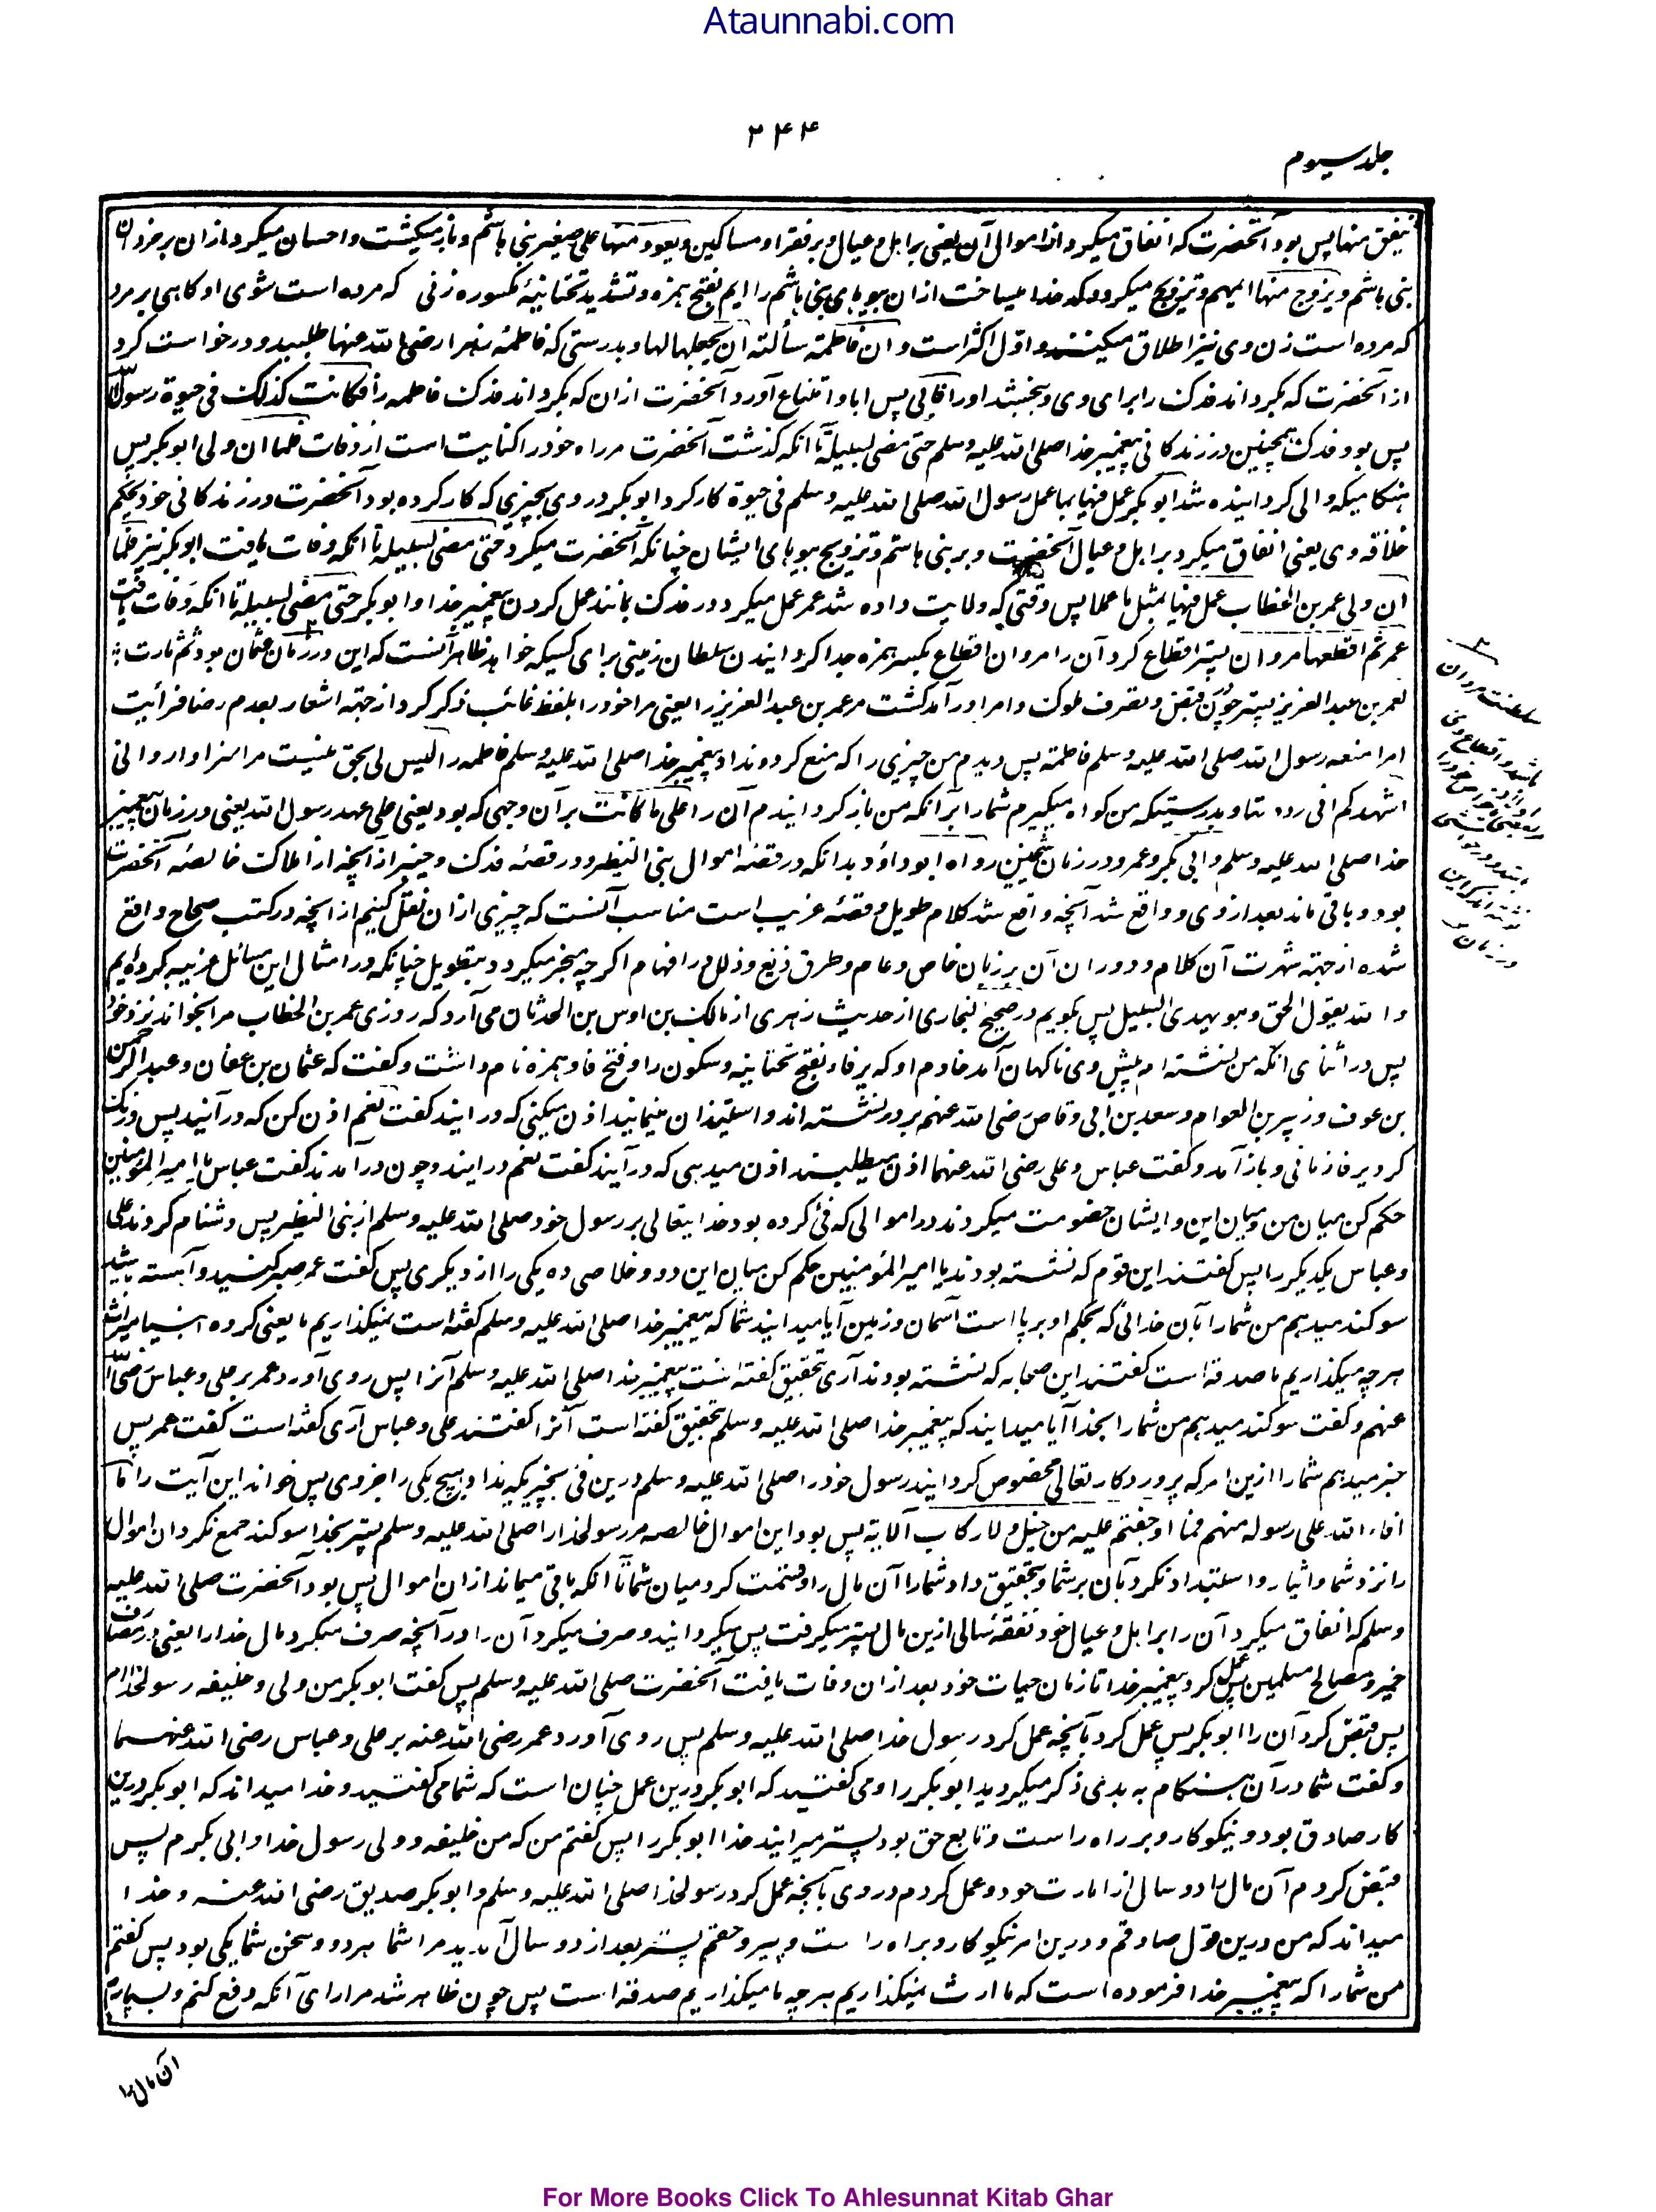 Ataunnabi.com
۲۴۴
جلد سیوم
ینفق منها پس بود آنحضرت که انفاق میکرد از اموال آن یعنی بر اهل و عیال و بر فقرا و مساکین و یعود منها علی صغیر بنی هاشم و باز میگشت و احسان میکرد ازان بر خردان
بنی هاشم و یزوج منها ایمهم و تزویج میکرد و کدخدا میساخت ازان بیوهای بنی هاشم را ایم بفتح همزه و تشدید تحتانیهٔ مکسوره زنی که مرده است شوی او و کاهی بر مرد
که مرده است زن وی نیز اطلاق میکنند و اول اکثر است و ان فاطمة سألته ان یجعلها لها و بدرستی که فاطمهٔ زهرا رضی الله عنها طلبید و درخواست کرد
از آنحضرت که بگرداند فدک را برای وی و بخشد او را فابی پس ابا و امتناع آورد آنحضرت ازان که بگرداند فدک فاطمه را فکانت کذلک فی حیوة رسول الله
پس بود فدک همچنین در زندکانی پیغمبر خدا صلی الله علیه وسلم حتی مضی لسبیله تا آنکه گذشت آنحضرت مر راه خود را کنایت است از وفات فلما ان ولی ابوبکر پس
هنکامیکه والی کردانیده شد ابوبکر عمل فیها بما عمل رسول الله صلی الله علیه وسلم فی حیوة کار کرد ابوبکر در وی بچیزی که کار کرده بود آنحضرت در زندکانی خود بحکم
خلافه وی یعنی انفاق میکرد بر اهل و عیال آنحضرت و بر بنی هاشم و تزویج بیوهای ایشان چنانکه آنحضرت میکرد حتی مضی لسبیله تا آنکه وفات یافت ابوبکر نیز فلما
ان ولی عمر بن الخطاب عمل فیها بمثل ما عملا پس وقتی که ولایت داده شد عمر عمل میکرد در فدک مانند عمل کردن پیغمبر خدا و ابوبکر حتی مضی لسبیله تا آنکه وفات یافت
عمر ثم اقطعها مروان پستر اقطاع کرد آن را مروان اقطاع بکسر همزه جدا کردانیدن سلطان زمینی برای کسیکه خواهد ظاهر آنست که این در زمان عثمان بود ثم صارت
لعمر بن عبد العزیز پستر چون قبض و تصرف ملوک و امرا درآمد کشت مر عمر بن عبد العزیز را یعنی مرا خود را بلفظ غائب ذکر کرد از جهته اشعار بعدم رضا فرأیت
امرا منعه رسول الله صلی الله علیه وسلم فاطمة پس دیدم من چیزی را که منع کرد و نداد پیغمبر خدا صلی الله علیه وسلم فاطمه را لیس لی بحق نیست مرا سزاوار و انی
اشهدکم انی رددتها و بدرستیکه من کواه میکیرم شما را بر آنکه من باز کردانیدم آن را علی ما کانت بر آن وجهی که بود یعنی علی عهد رسول الله یعنی در زمان پیغمبر
خدا صلی الله علیه وسلم و ابی بکر و عمر و در زمان شیخین رواه ابوداؤد بدانکه در قصهٔ اموال بنی النضیر و در قصهٔ فدک و خیبر از آنچه از املاک خالصهٔ آنحضرت
بود و باقی ماند بعد از وی و واقع شد آنچه واقع شد کلام طویل و قصهٔ غریب است مناسب آنست که چیزی ازان نقل کنیم از آنچه در کتب صحاح واقع
شده از جهته شهرت آن کلام و دوران آن بر زبان خاص و عام و طرق زیغ و ذلل در افهام اکرچه منجر میکردد بتطویل چنانکه در امثال این مسائل غریبه کرده ایم
والله یقول الحق و هو یهدی السبیل پس بکویم در صحیح بخاری از حدیث زهری از مالک بن اوس بن الحدثان می آرد که روزی عمر بن الخطاب مرا بخواند نزد خود
پس در اثنای آنکه من نشسته ام پیش وی ناکهان آمد خادم او که یرفا بفتح تحتانیه و سکون را و فتح فا و همزه نام داشت و گفت که عثمان بن عفان و عبد الرحمن
بن عوف و زبیر بن العوام و سعد بن ابی وقاص رضی الله عنهم بر در نشسته اند و استیذان مینمایند اذن میکنی که درایند گفت نعم اذن کن که درآیند پس درنک
کرد یرفا زمانی و باز آمد و گفت عباس و علی رضی الله عنهما اذن میطلبند اذن میدهی که درآیند گفت نعم درایند و چون درآمدند گفت عباس یا امیر المؤمنین
حکم کن میان من و میان این و ایشان خصومت میکردند در اموالی که فئ کرده بود خدایتعالی بر رسول خود صلی الله علیه وسلم از بنی النضیر پس دشنام کردند علی
و عباس یکدیکر را پس گفتند این قوم که نشسته بودند یا امیر المؤمنین حکم کن میان این دو و خلاصی ده یکی را از دیگری پس گفت عمر صبر کنید و آهسته باشید
سوکند میدهم من شما را بآن خدائی که بحکم او برپا است آسمان و زمین آیا میدانید شما که پیغمبر خدا صلی الله علیه وسلم گفته است نمیکذاریم ما یعنی گروه انبیا میراث
هرچه میکذاریم ما صدقه است گفتند این صحابه که نشسته بودند آری بتحقیق گفته است پیغمبر خدا صلی الله علیه وسلم آنرا پس روی آورد عمر بر علی و عباس رضی الله
عنهم و گفت سوکند میدهم من شما را بخدا آیا میدانید که پیغمبر خدا صلی الله علیه وسلم بتحقیق گفته است آنرا گفتند علی و عباس آری گفته است گفت عمر پس
خبر میدهم شما را ازین امر که پروردکار تعالی مخصوص کردانید رسول خود را صلی الله علیه وسلم درین فئ بچیزیکه نداد هیچ یکی را جز وی پس خواند این آیت را ما
افاء الله علی رسوله منهم فما اوجفتم علیه من خیل و لا رکاب الآیة پس بود این اموال خالصه مر رسولخدا را صلی الله علیه وسلم پستر بخدا سوکند جمع نکرد آن اموال
را نزد شما و ایثار و استبداد نکرد بآن بر شما و بتحقیق داد شما را آن مال را و قسمت کرد میان شما تا آنکه باقی میماند ازان اموال پس بود آنحضرت صلی الله علیه
وسلم که انفاق میکرد آن را بر اهل و عیال خود نفقهٔ سالی ازین مال پستر میکرفت پس میکردانید و صرف میکرد آن را در آنچه صرف میکرد مال خدا را یعنی در مصارف
خیر و مصالح مسلمین پس عمل کرد پیغمبر خدا تا زمان حیات خود بعد ازان وفات یافت آنحضرت صلی الله علیه وسلم پس گفت ابوبکر من ولی و خلیفه رسولخدا ام
پس قبض کرد آن را ابوبکر پس عمل کرد بآنچه عمل کرد رسول خدا صلی الله علیه وسلم پس روی آورد عمر رضی الله عنه بر علی و عباس رضی الله عنهما
و گفت شما در آن هنکام به بدی ذکر میکردید ابوبکر را و می گفتید که ابوبکر درین عمل چنان است که شما می گفتید و خدا میداند که ابوبکر درین
کار صادق بود و نیکوکار و بر راه راست و تابع حق بود پستر میرانید خدا ابوبکر را پس گفتم من که من خلیفه و ولی رسول خدا و ابی بکرم پس
قبض کردم آن مال را دو سال از امارت خود و عمل کردم در وی بآنچه عمل کرد رسولخدا صلی الله علیه وسلم و ابوبکر صدیق رضی الله عنه و خدا
میداند که من درین قول صادقم و درین امر نیکوکار و براه راست و پیرو حقم پستر بعد از دو سال آمدید مرا شما هر دو و سخن شما یکی بود پس گفتم
من شما را که پیغمبر خدا فرموده است که ما ارث نمیکذاریم هرچه ما میکذاریم صدقه است پس چون ظاهر شد مرا رای آنکه دفع کنم و بسپارم
سلطنت مروان
باشد و اقطاع وی
در زمان
آن مال را
For More Books Click To Ahlesunnat Kitab Ghar